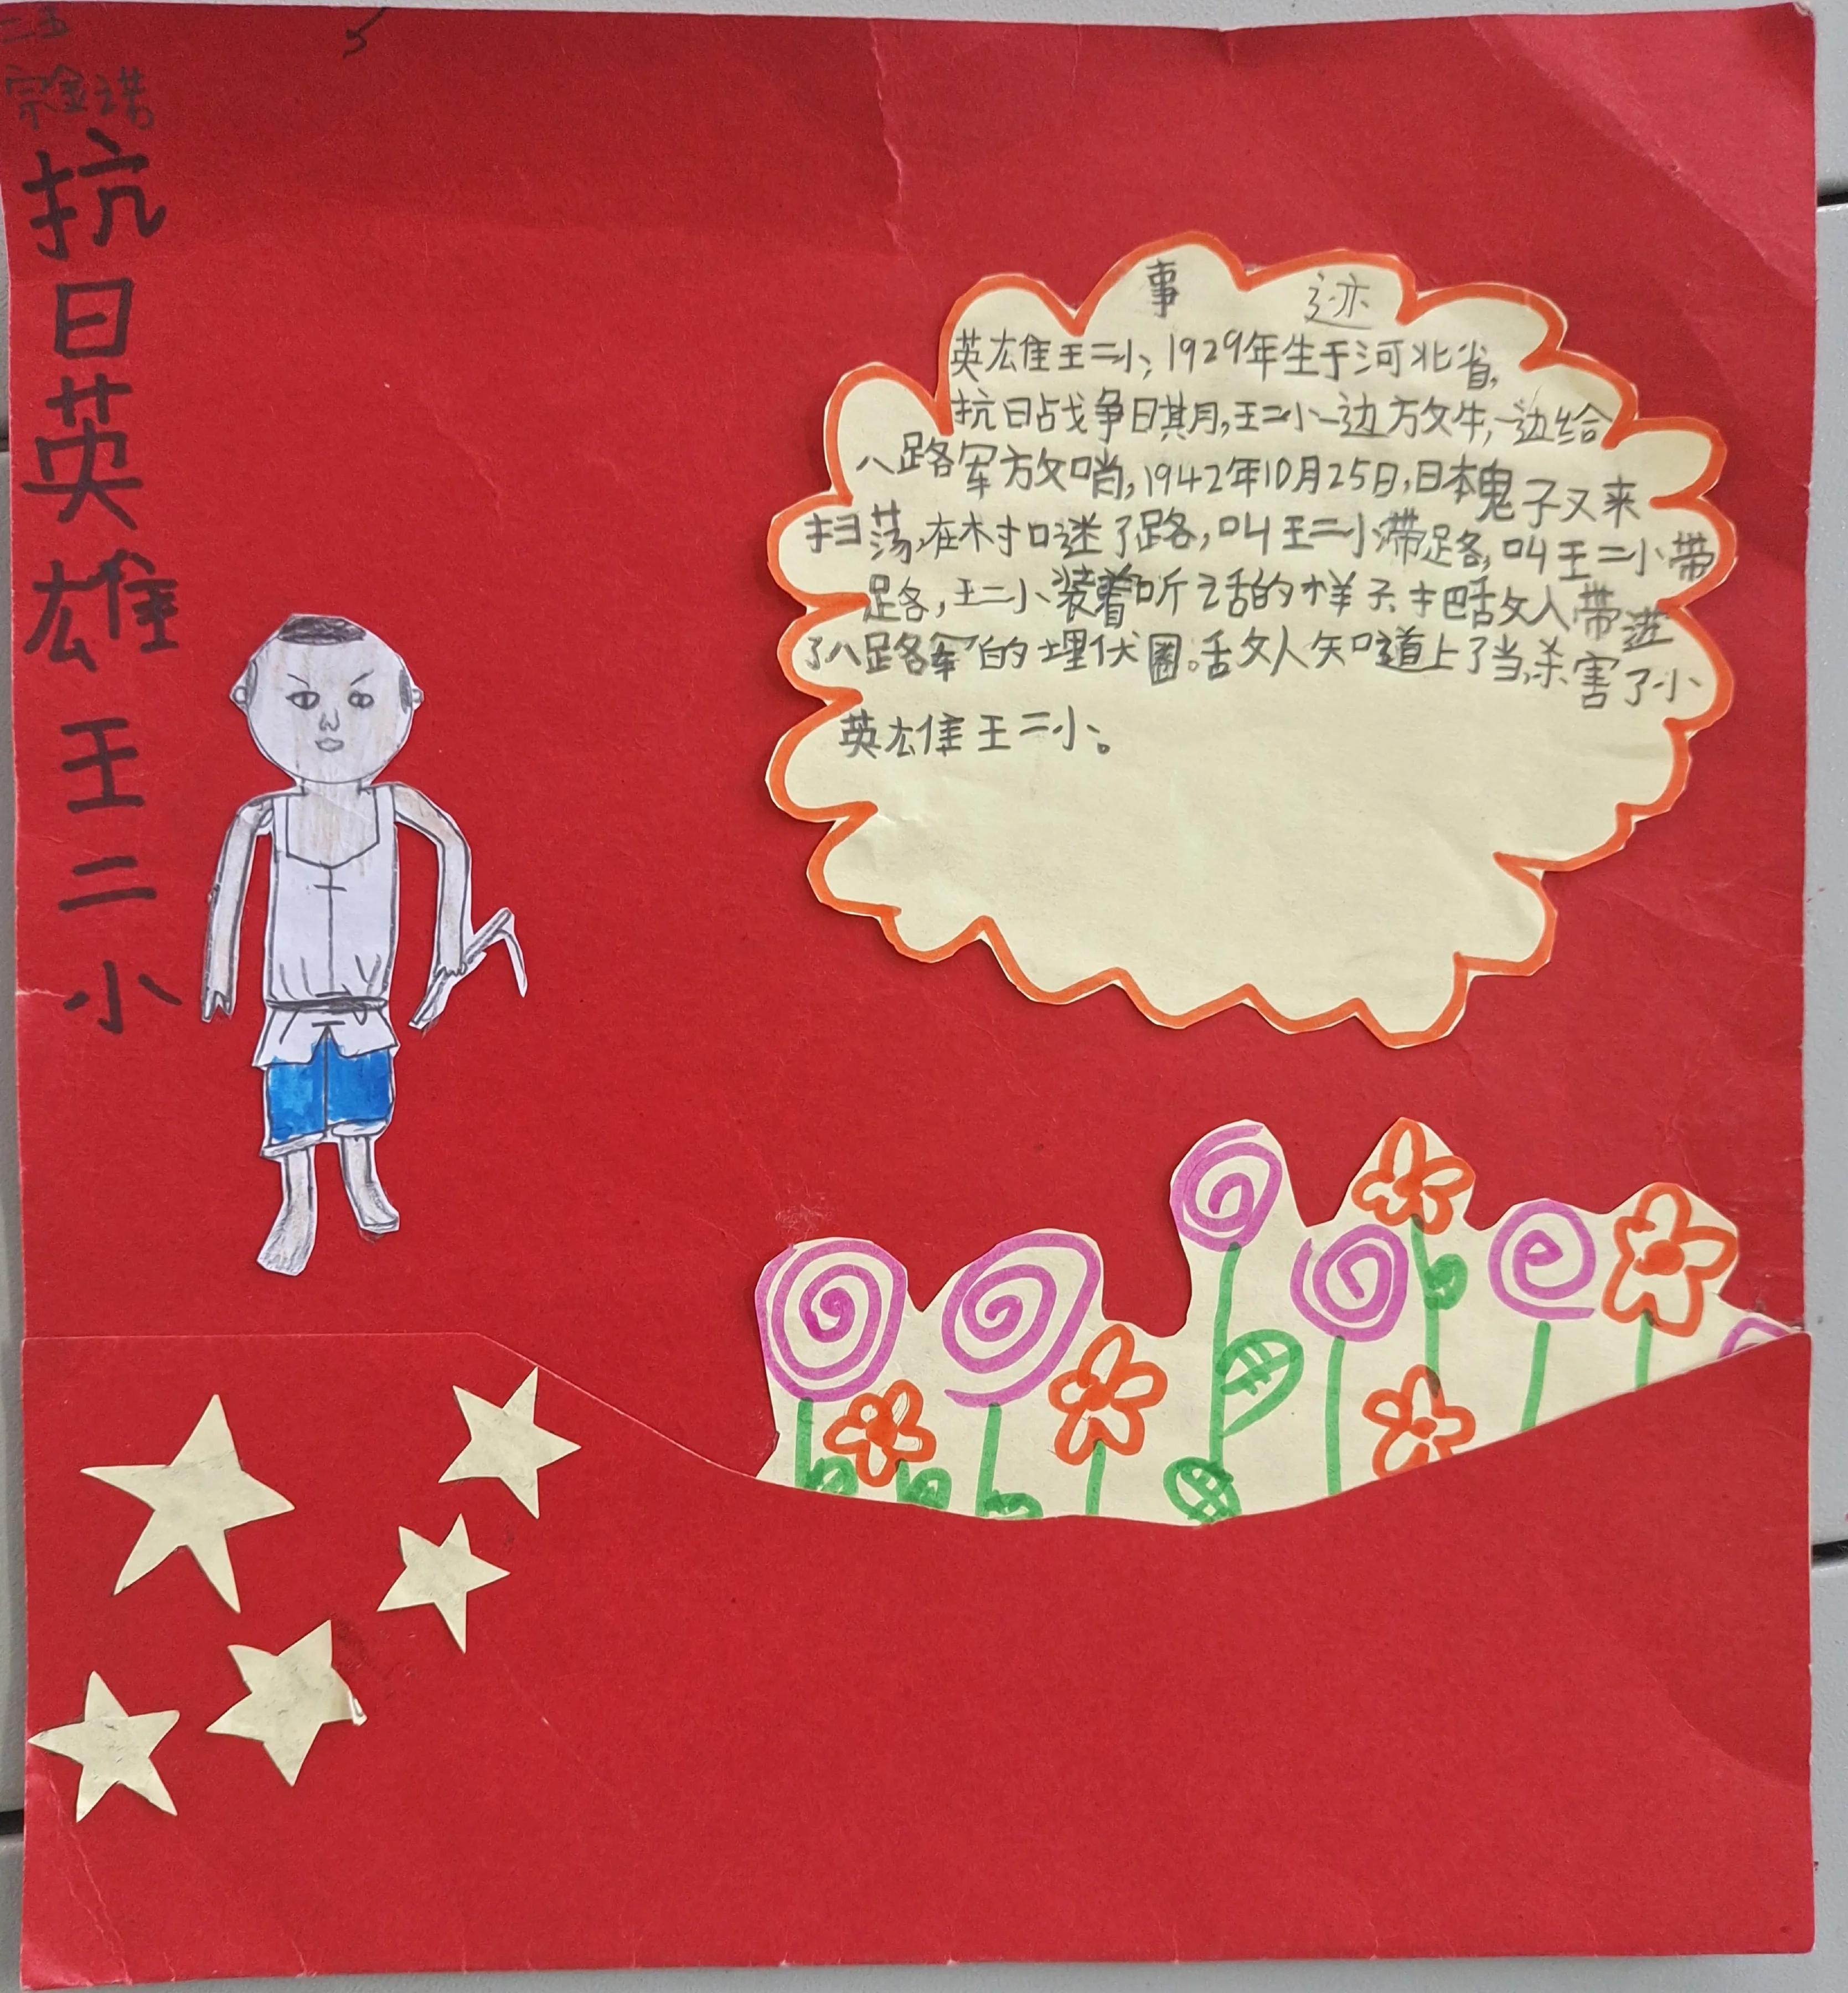 二5
宗金诺
抗日英雄王二小
事迹
英雄王二小,1929年生于河北省,
抗日战争日期,王二小一边放牛,一边给
八路军放哨,1942年10月25日,日本鬼子又来
扫荡,在村口迷了路,叫王二小带路,叫王二小带
路,王二小装着听话的样子把敌人带进
了八路军的埋伏圈。敌人知道上了当,杀害了小
英雄王二小。